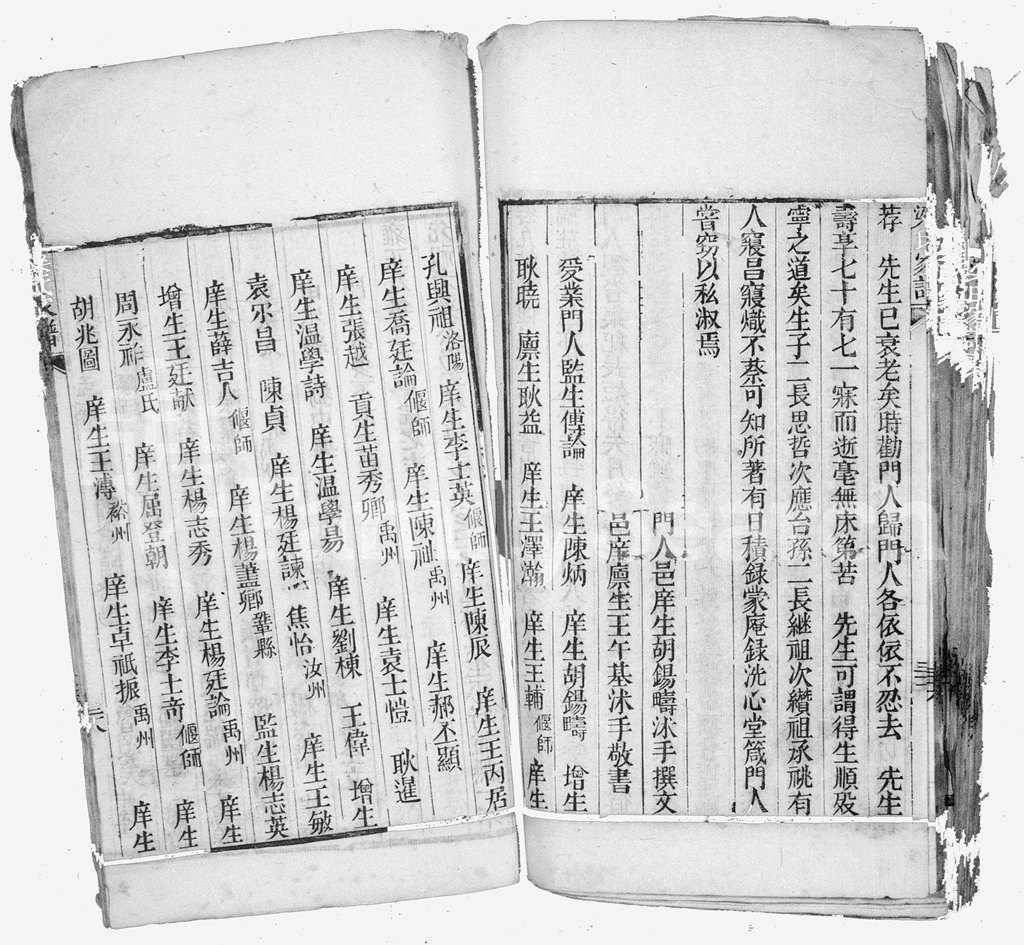 荐　先生已衰老矣時勸門人歸門人各依依不忍去　先生
壽享七十有七一寐而逝毫無床第苦　先生可謂得生順歿
寧之道矣生子二長思哲次應台孫二長継祖次纘祖承祧有
人寢昌寢熾不蔡可知所著有日積録蒙庵録洗心堂箴門人
嘗窃以私淑焉
門人邑庠生胡錫疇沐手撰文
邑庠廪生王午基沐手敬書
受業門人監生傅論　庠生陳炳　庠生胡錫疇　增生
耿曉　廪生耿益　庠生王澤瀚　庠生王輔偃師　庠生
孔興祖洛陽　庠生李士英偃師　庠生陳辰　庠生王丙居
庠生喬廷論偃師　庠生陳祉禹州　庠生郝丕顯
庠生張越　貢生苗秀卿禹州　庠生袁士愷　耿暹
庠生温學詩　庠生温學易　庠生劉棟　王偉　增生
袁尔昌　陳貞　庠生楊廷諫　焦怡汝州　庠生王敏
庠生薛吉人偃師　庠生楊藎卿鞏縣　監生楊志英
增生王廷献　庠生楊志秀　庠生楊廷論禹州　庠生
周永祚盧氏　庠生屈登朝　庠生李士奇偃師　庠生
胡兆圖　庠生王溥裕州　庠生卓祇振禹州　庠生